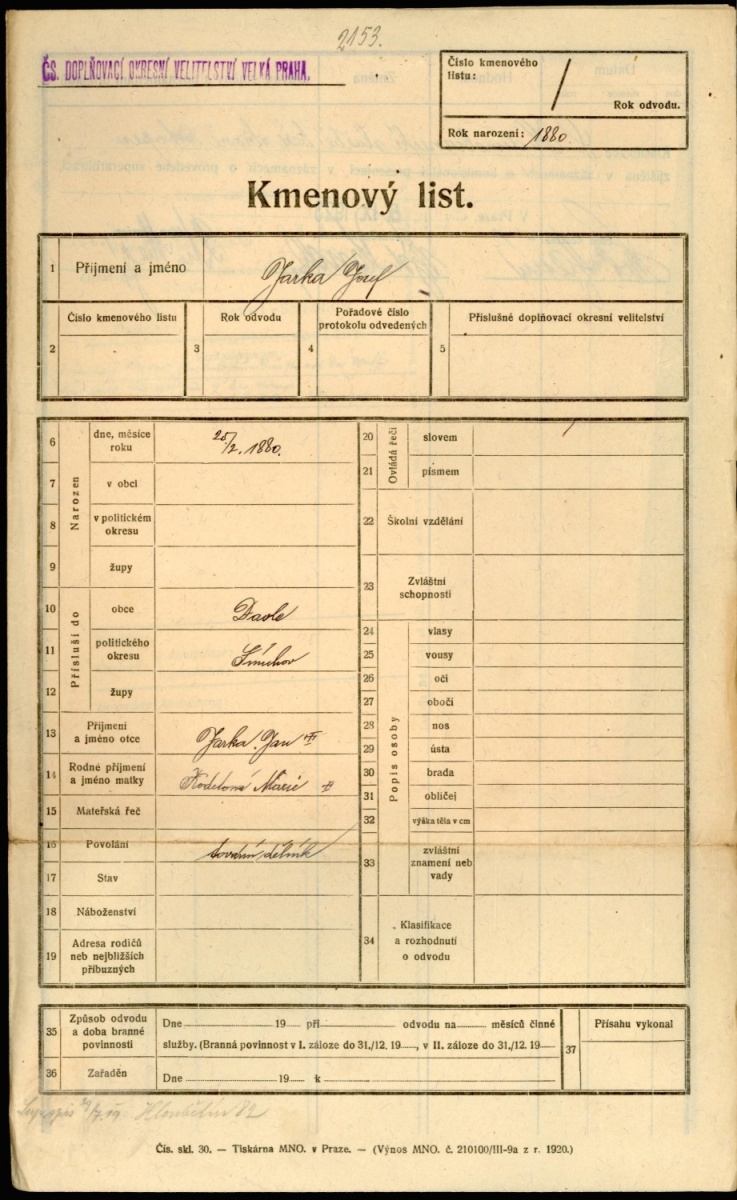 2153.
ČS. DOPLŇOVACÍ OKRESNÍ VELITELSTVÍ VELKÁ PRAHA.
Číslo kmenového
listu:
Rok odvodu.
Rok narození: 1880.
Kmenový list.
1 Příjmení a jméno Jarka Josef
2 Číslo kmenového listu
3 Rok odvodu
4 Pořadové číslo
protokolu odvedených
5 Příslušné doplňovací okresní velitelství
Narozen
6 dne, měsíce
roku /2. 1880.
7 v obci
8 v politickém
okresu
9 župy
Přísluší do
10 obce Davle
11 politického
okresu Smíchov
12 župy
13 Příjmení
a jméno otce Jarka Jan
14 Rodné příjmení
a jméno matky Marie
15 Mateřská řeč
16 Povolání tovární dělník
17 Stav
18 Náboženství
19 Adresa rodičů
neb nejbližších
příbuzných
Ovládá řeči
20 slovem
21 písmem
22 Školní vzdělání
23 Zvláštní
schopnosti
Popis osoby
24 vlasy
25 vousy
26 oči
27 obočí
28 nos
29 ústa
30 brada
31 obličej
32 výška těla v cm
33 zvláštní
znamení neb
vady
34 Klasifikace
a rozhodnutí
o odvodu
35 Způsob odvodu
a doba branné
povinnosti
Dne 19 při odvodu na měsíců činné
služby. (Branná povinnost v I. záloze do 31./12. 19 , v II. záloze do 31./12. 19
36 Zařaděn
Dne 19 k
37 Přísahu vykonal
Hloubětín 82
Čís. skl. 30. — Tiskárna MNO. v Praze. — (Výnos MNO. č. 210100/III-9a z r. 1920.)